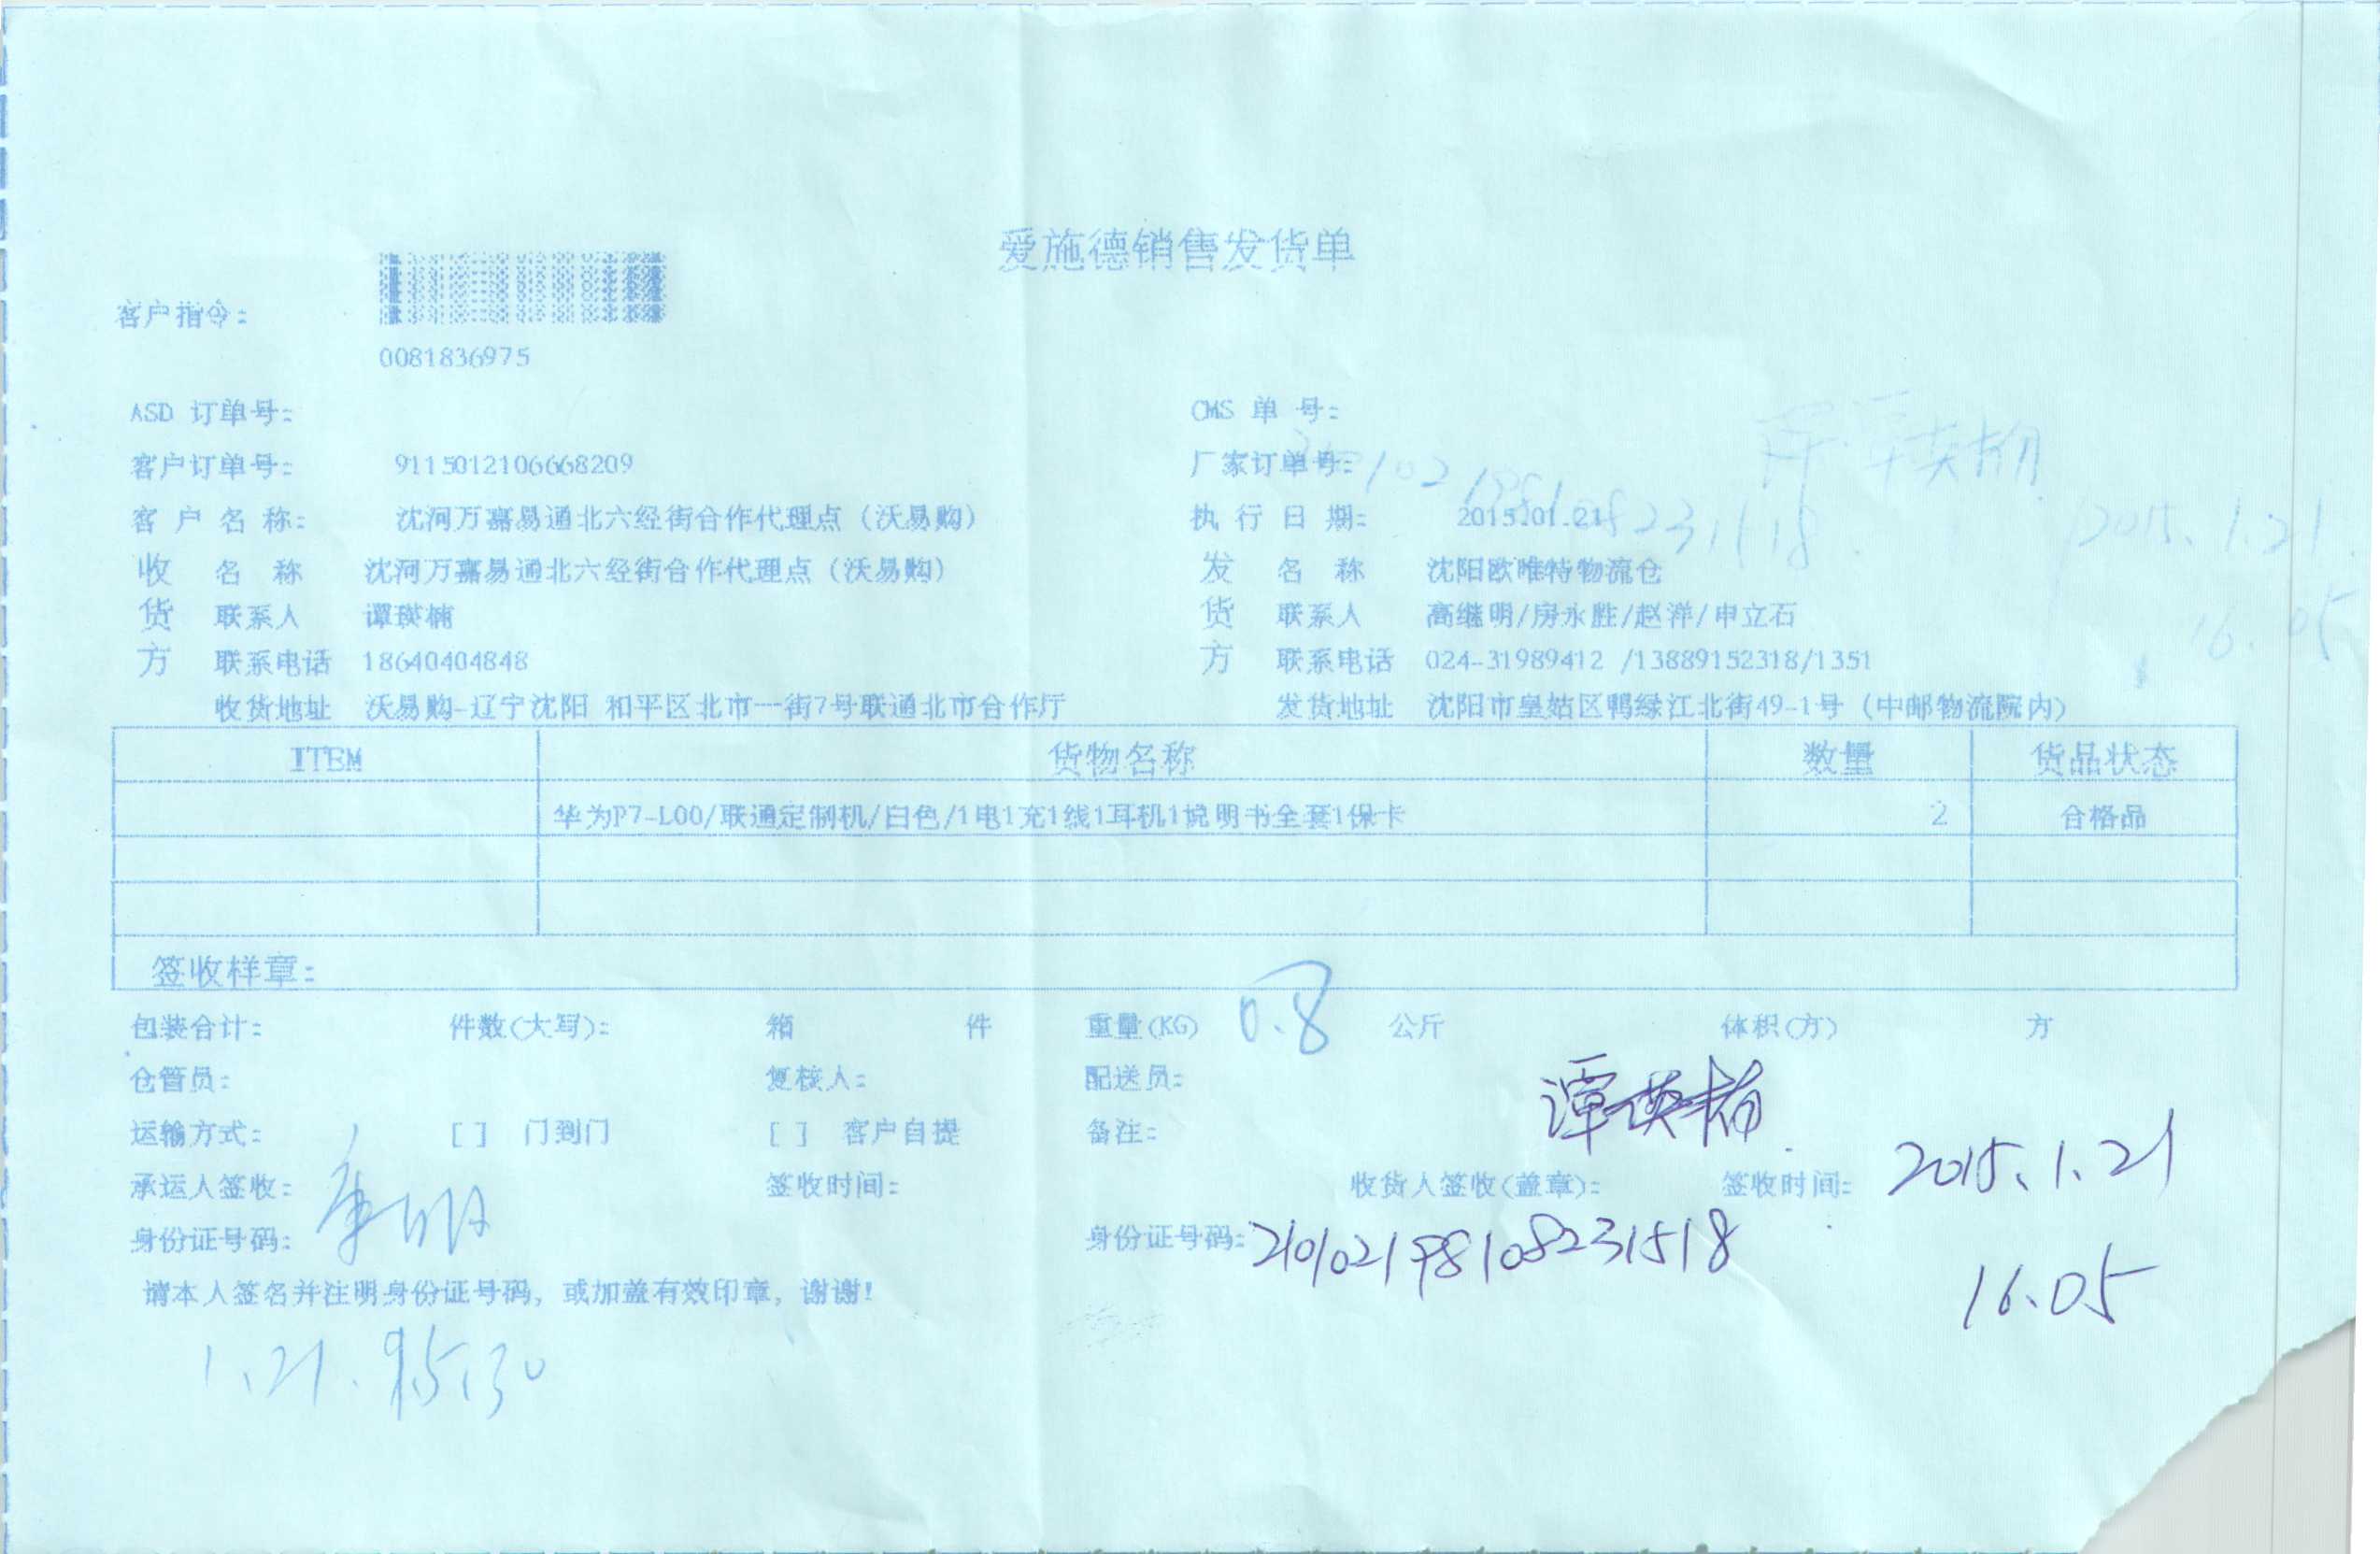 爱施德销售发货单
客户指令：
0081836975
ASD 订单号： CMS 单 号：
客户订单号： 9115012106668209 厂家订单号：
客 户 名 称： 沈河万嘉易通北六经街合作代理点（沃易购） 执 行 日 期： 2015.01.21
收 名 称 沈河万嘉易通北六经街合作代理点（沃易购） 发 名 称 沈阳欧唯特物流仓
货 联系人 谭瑛楠 货 联系人 高继明/房永胜/赵洋/申立石
方 联系电话 18640404848 方 联系电话 024-31989412 /13889152318/1351
收货地址 沃易购-辽宁沈阳 和平区北市一街7号联通北市合作厅 发货地址 沈阳市皇姑区鸭绿江北街49-1号（中邮物流院内）
2015.1.21
16.05
ITEM 货物名称 数量 货品状态
华为P7-L00/联通定制机/白色/1电1充1线1耳机1说明书全套1保卡 2 合格品
签收样章：
包装合计： 件数(大写)： 箱 件 重量(KG) 0.8 公斤 体积(方) 方
仓管员： 复核人： 配送员：
谭瑛楠
运输方式： [ ] 门到门 [ ] 客户自提 备注：
承运人签收： 签收时间： 收货人签收(盖章)： 签收时间： 2015.1.21
身份证号码： 身份证号码：210102198108231518
16.05
请本人签名并注明身份证号码，或加盖有效印章，谢谢！
1.21.